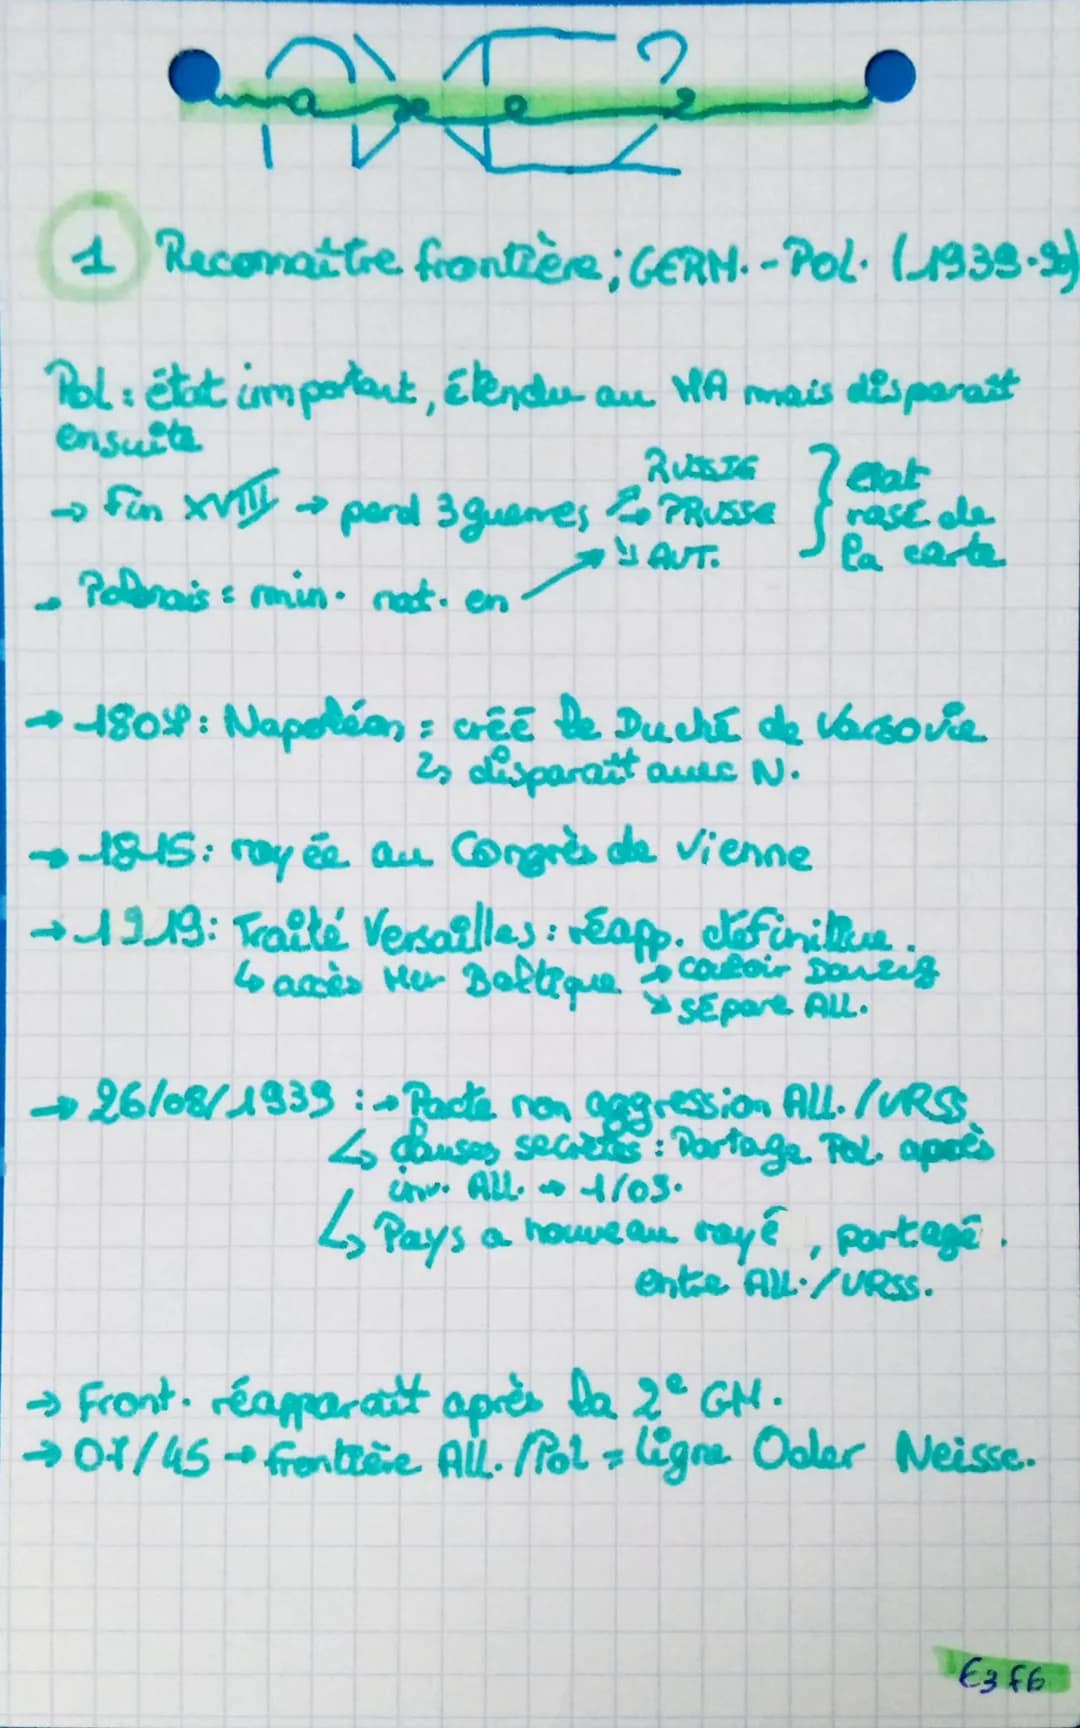 axe 2
1 Reconnaître frontière; GERM.-Pol. (1939-90)
Pol : état important, étendu au MA mais disparaît
ensuite
→ Fin XVIII → perd 3 guerres ↗ RUSSIE } état
↳ PRUSSE rasé de
↘ AUT. la carte
→ Polonais = min. nat. en
→ 1807 : Napoléon = créé le Duché de Varsovie
↳ disparaît avec N.
→ 1815 : rayée au Congrès de Vienne
→ 1919 : Traité Versailles : réapp. définitive.
↳ accès Mer Baltique → couloir Danzig
↘ sépare ALL.
→ 26/08/1939 : → Pacte non aggression ALL./URSS
↳ clauses secrètes : Partage Pol. après
inv. All. → 1/09.
↳ Pays a nouveau rayé, partagé.
entre All./URSS.
→ Front. réapparaît après la 2e GM.
→ 07/45 → frontière All./Pol = ligne Oder Neisse.
E3 f6